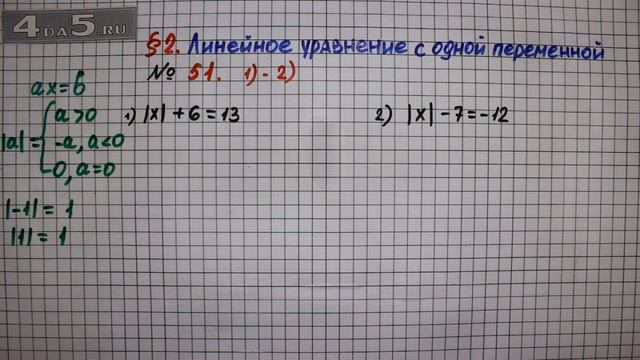 4DA5.RU
§2. Линейное уравнение с одной переменной
№ 51. 1)-2)
ax=b
|a|= { a>0
-a, a<0
0, a=0
|-1|= 1
|1|= 1
1) |x|+6=13
2) |x|-7=-12